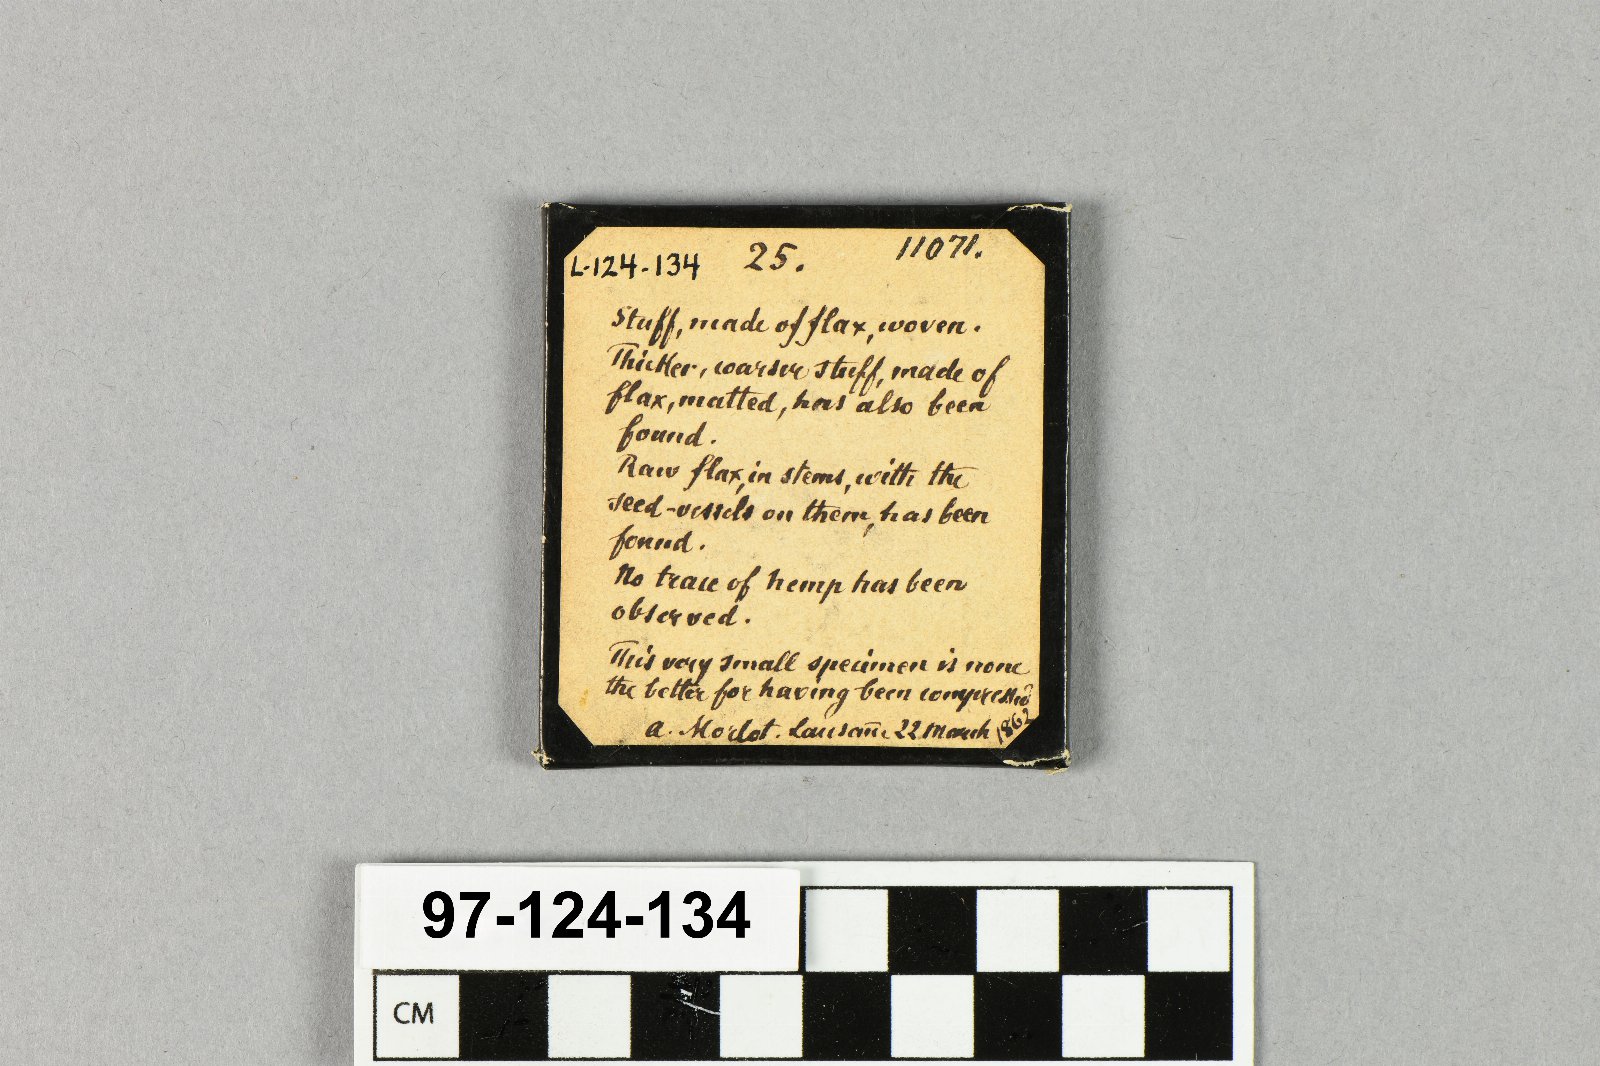 L-124-134 25. 11071.
Stuff, made of flax, woven.
Thicker, coarser stuff, made of
flax, matted, has also been
found.
Raw flax, in stems, with the
seed-vessels on them, has been
found.
No trace of hemp has been
observed.
This very small specimen is none
the better for having been compressed
A. Morlot. Lausanne 22 March 1862
97-124-134
CM